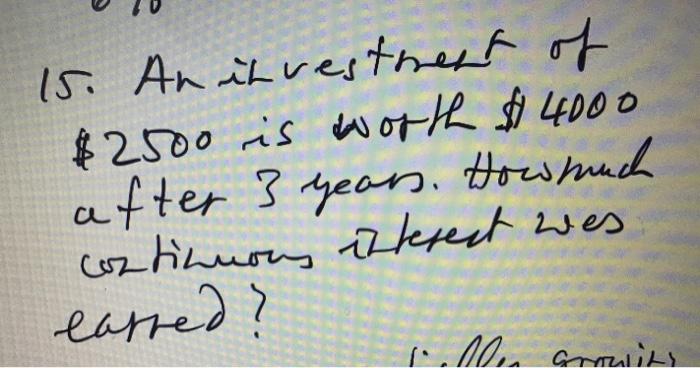 15. An investment of
$2500 is worth $4000
after 3 years. How much
continuous interest was
earned?
growing